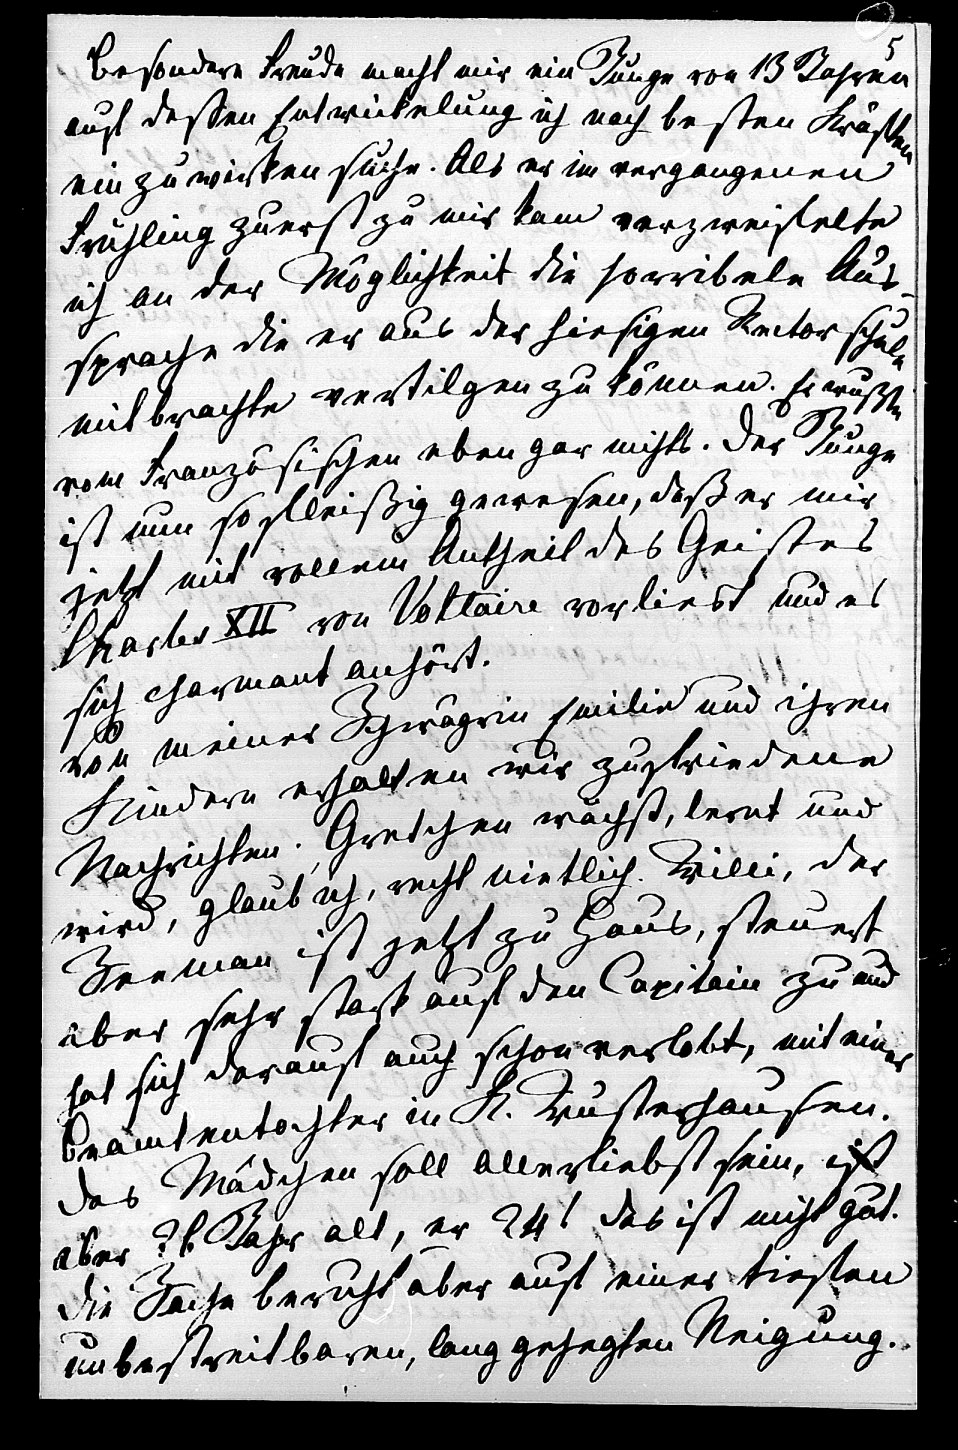 5
Besondere Freude macht mir ein Junge von 13 Jahren
auf deßen Entwickelung ich nach besten Kräften
einzuwirken suche. Als er im vergangenen
Frühling zuerst zu mir kam verzweifelte
ich an der Möglichkeit die horribele Aus-
sprache die er aus der hiesigen Rectorschule
mitbrachte vertilgen zu können. Er wußte
vom Französischen eben gar nichts. Der Junge
ist nun so fleißig gewesen, daß er mir
jetzt mit vollem Antheil des Geistes
Charles XII von Voltaire vorliest und es
sich charmant anhört.
Von meiner Schwägrin Emilie und ihren
Kindern erhalten wir zufriedene
Nachrichten. Gretchen wächst, lernt und
wird, glaub ich, recht nietlich. Willi, der
Seeman ist jetzt zu Haus, steuert
aber sehr stark auf den Capitain zu und
hat sich darauf auch schon verlobt, mit einer
Beamtentochter in K. Wusterhausen.
Das Mädchen soll allerliebst sein, ist
aber Jahr alt, er 24! das ist nicht gut.
Die Sache beruht aber auf einer tiefen
unbestreitbaren, lang gehegten Neigung.